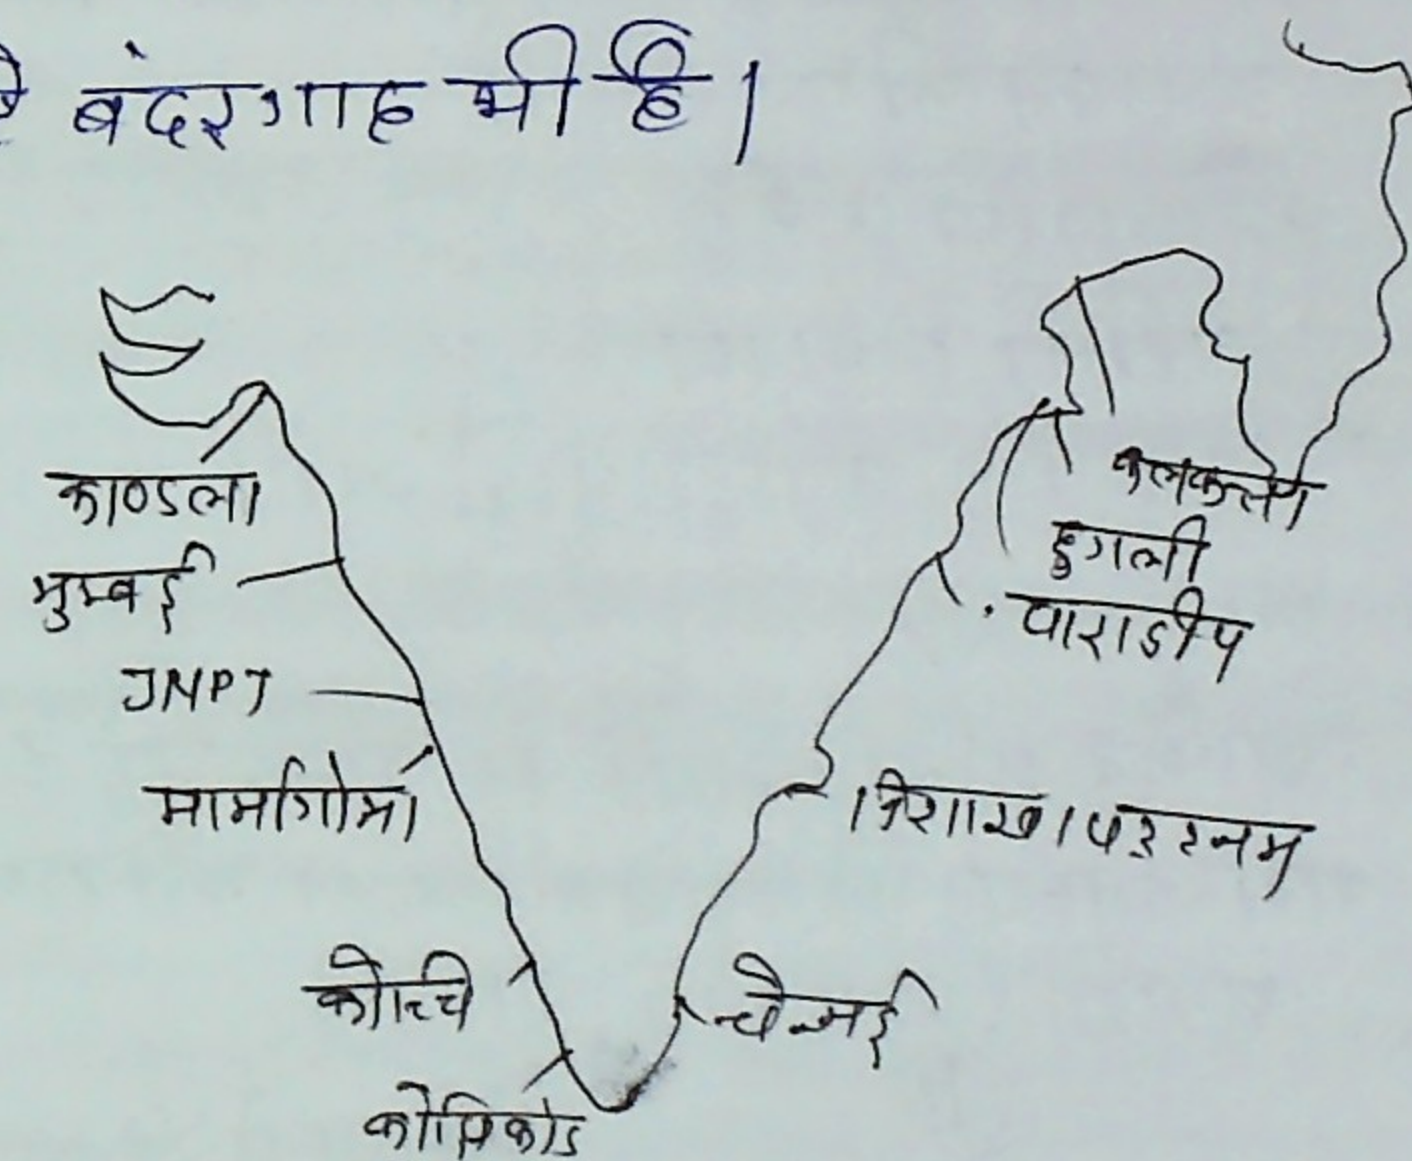 बंदरगाह भी है।
काण्डला
मुम्बई
JNPT
मार्मागोमा
कोच्चि
कोझिकोड
कलकत्ता
हुगली
पाराडीप
विशाखापट्टनम
चेन्नई